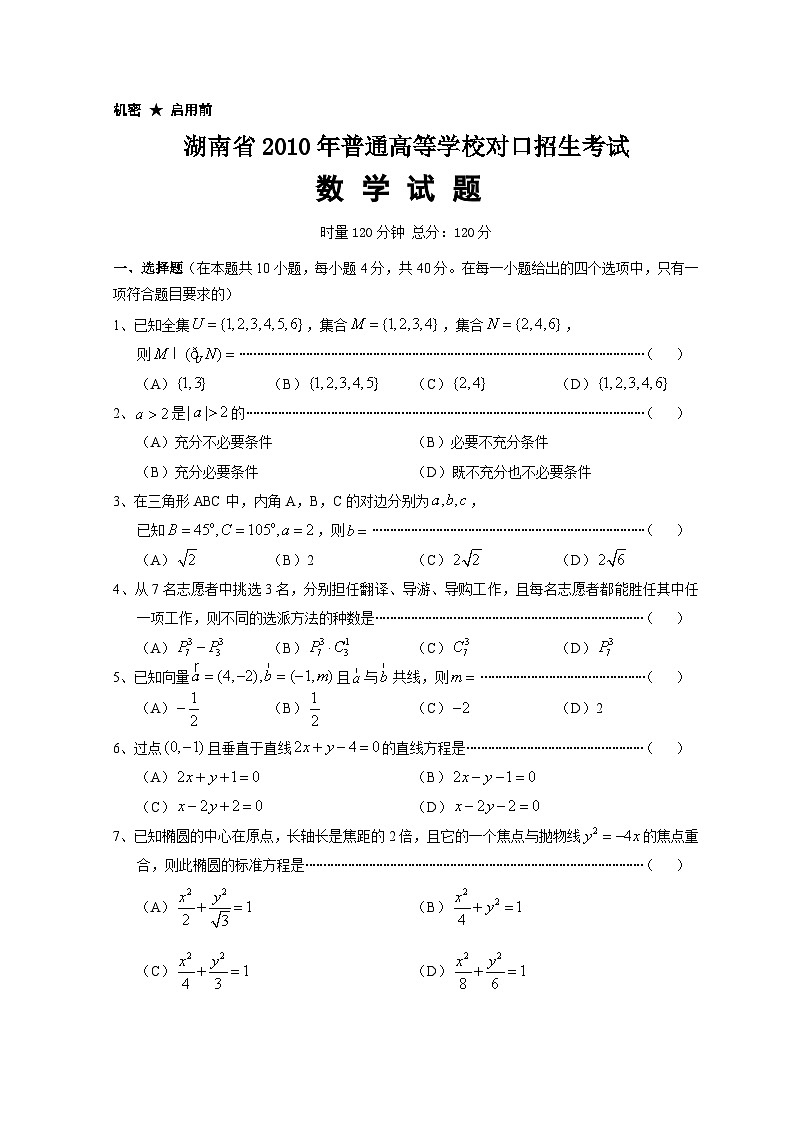 机密 ★ 启用前
湖南省 2010 年普通高等学校对口招生考试
数 学 试 题
时量 120 分钟 总分：120 分
一、选择题（在本题共 10 小题，每小题 4 分，共 40 分。在每一小题给出的四个选项中，只有一
项符合题目要求的）
1、已知全集 U = {1,2,3,4,5,6}，集合 M = {1,2,3,4}，集合 N = {2,4,6}，
则 M I (ð_U N) = ……（ ）
（A）{1,3} （B）{1,2,3,4,5} （C）{2,4} （D）{1,2,3,4,6}
2、a > 2 是 | a |> 2 的……（ ）
（A）充分不必要条件 （B）必要不充分条件
（B）充分必要条件 （D）既不充分也不必要条件
3、在三角形 ABC 中，内角 A，B，C 的对边分别为 a,b,c，
已知 B = 45°,C = 105°,a = 2，则 b = ……（ ）
（A）√2 （B）2 （C）2√2 （D）2√6
4、从 7 名志愿者中挑选 3 名，分别担任翻译、导游、导购工作，且每名志愿者都能胜任其中任
一项工作，则不同的选派方法的种数是……（ ）
（A）P₇³ − P₃³ （B）P₇³ · C₃¹ （C）C₇³ （D）P₇³
5、已知向量 a = (4,−2),b = (−1,m) 且 a 与 b 共线，则 m = ……（ ）
（A）−1/2 （B）1/2 （C）−2 （D）2
6、过点 (0,−1) 且垂直于直线 2x + y − 4 = 0 的直线方程是……（ ）
（A）2x + y + 1 = 0 （B）2x − y − 1 = 0
（C）x − 2y + 2 = 0 （D）x − 2y − 2 = 0
7、已知椭圆的中心在原点，长轴长是焦距的 2 倍，且它的一个焦点与抛物线 y² = −4x 的焦点重
合，则此椭圆的标准方程是……（ ）
（A）x²/2 + y²/√3 = 1 （B）x²/4 + y² = 1
（C）x²/4 + y²/3 = 1 （D）x²/8 + y²/6 = 1